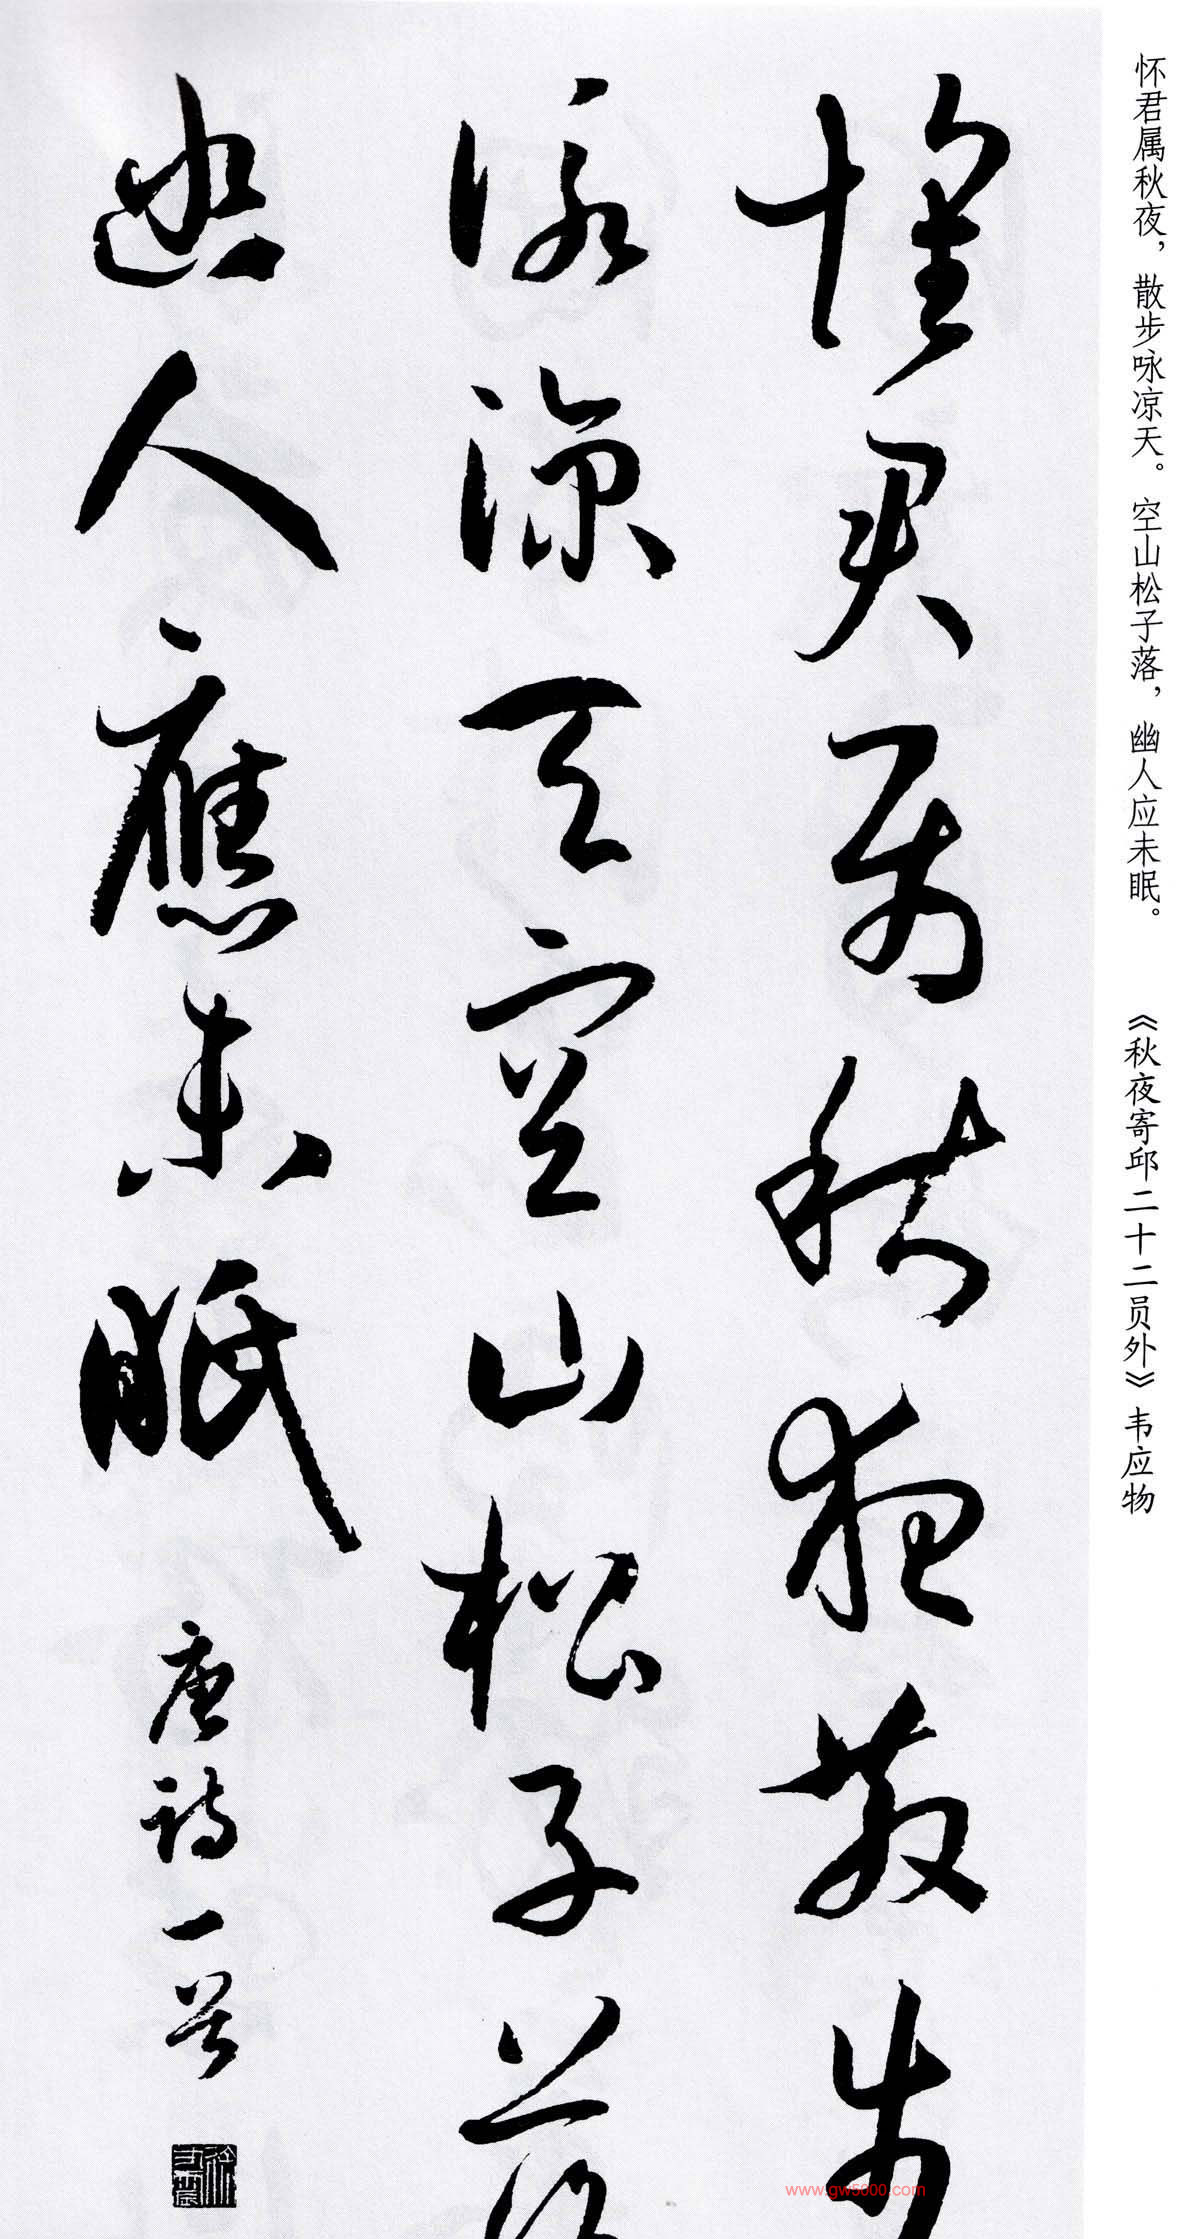 怀君属秋夜，散步咏凉天。空山松子落，幽人应未眠。 《秋夜寄邱二十二员外》韦应物
懷君属秋夜散步
詠涼天空山松子落
幽人應未眠
唐詩一首
www.gw5000.com